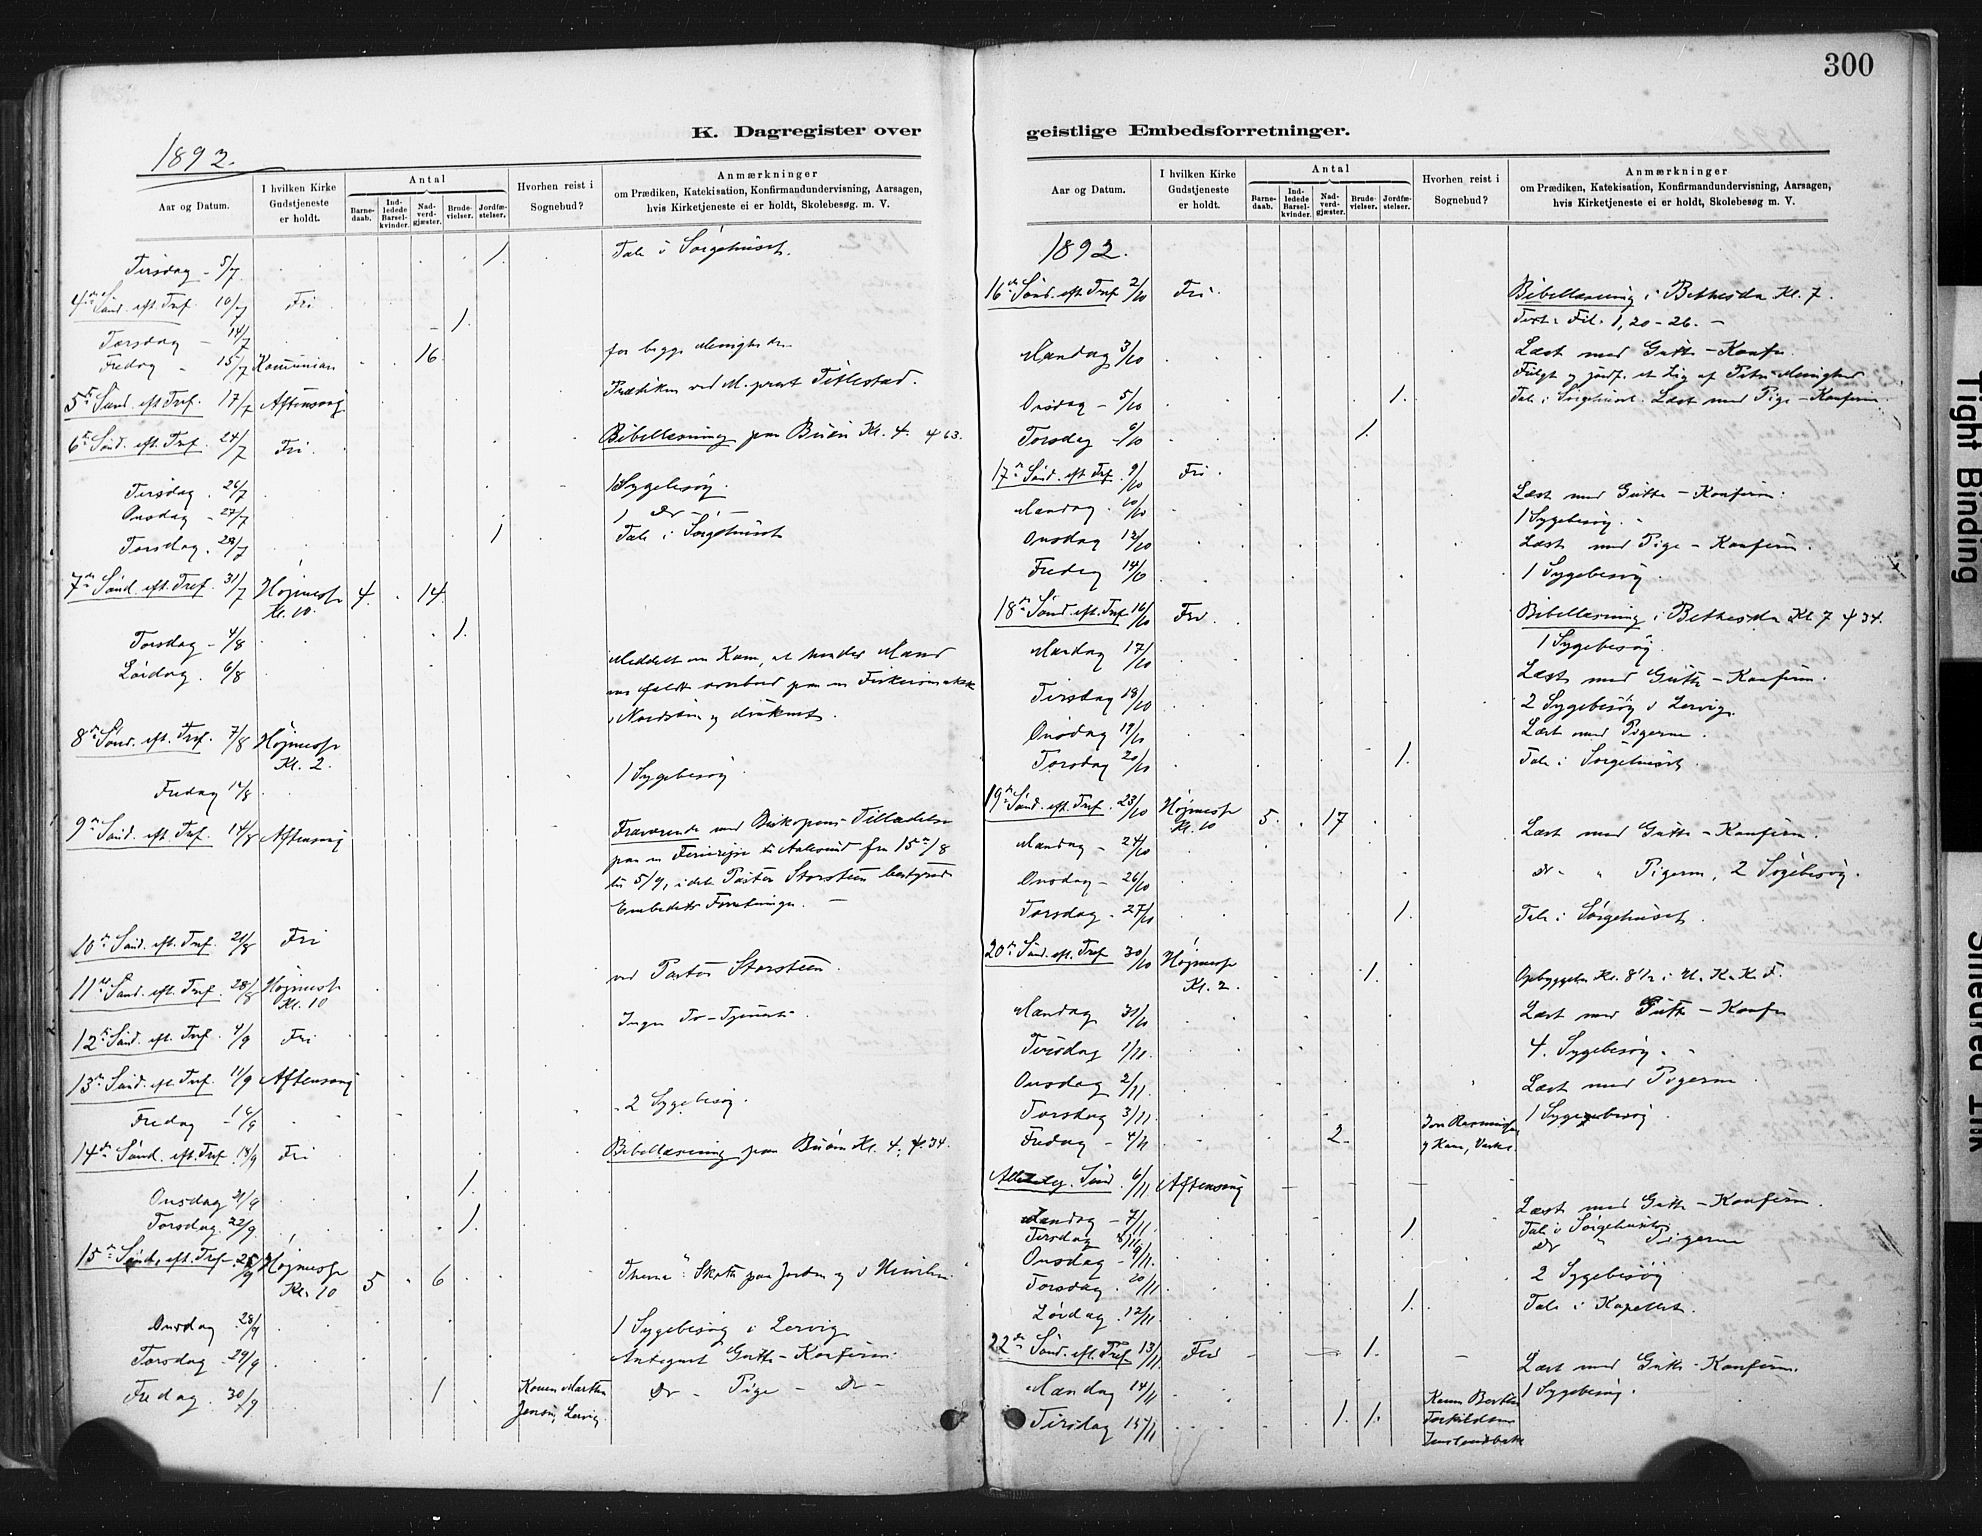 300
K. Dagregister over geistlige Embedsforretninger.
1892.
Aar og Datum.
I hvilken Kirke Gudstjeneste er holdt.
Antal
Barnedaab.
Indledede Barselkvinder.
Nadverdgjæster.
Brudevielser.
Jordfæstelser.
Hvorhen reist i Sognebud?
Anmærkninger
om Prædiken, Katekisation, Konfirmandundervisning, Aarsagen,
hvis Kirketjeneste ei er holdt, Skolebesøg. m. V.
Tirsdag - 5/7 1. Tale i Sørgehuset.
4de Sønd. eft. Tref. 10/7 Fri
Torsdag - 14/7 1.
Fredag - 15/7 Komunion 16 for begge Menigheder
5te Sønd. eft. Tref. 17/7 Aftensang Prædiken ved M. prest Titlestad.
6te Sønd. eft. Tref. 24/7 Fri. Bibellæsning paa Buøn Kl. 4.
Tirsdag . 26/7 1 Sygebesøg.
Onsdag - 27/7 1 Do - -
Torsdag . 28/7 1 Tale i Sørgehuset
7de Sønd. eft. Tref. 31/7 Højmesse Kl. 10. 4. 14
Torsdag - 4/8 1.
Lørdag . 6/8 Meddelt en Kone, at hendes Mand
var faldt overbord paa en
i Nordsjøen og druknet.
8de Sønd. eft. Tref. 7/8 Højmesse Kl. 2.
Fredag 12/8 1 Sygebesøg
9de Sønd. eft. Tref. 14/8 Aftensang Fraværende med Biskopens Tilladelse
paa en Feriereise til Aalesund fra 15de/8
til 5/9, idet Pastor Storsteen bestyrede
Embedets Forretninger. -
10de Sønd. eft. Tref. 21/8 Fri
11te Sønd. eft. Tref. 28/8 Højmesse Kl. 10 ved Pastor Storsteen.
12te Sønd. eft. Tref. 4/9 Fri Ingen To-Tjeneste.
13de Sønd. eft. Tref. 11/9 Aftensang
Fredag - 16/9 2 Sygebesøg.
14de Sønd. eft. Tref. 18/9 Fri Bibellæsning paa Buøn Kl. 4. 34.
Onsdag 21/9 1.
Torsdag. 22/9 1.
15de Sønd. eft. Tref. 25/9 Højmesse Kl. 10 5 6 Thema: Skatte paa Jorden og i Himlen
Onsdag 28/9 1 Sygebesøg i Lervig
Torsdag - 29/9 Antegnet Gutte-Konfirm.
Fredag . 30/9 1 Konen Marthe Jensen, Lervig Do - Pige - Do -
K. Dagregister over geistlige Embedsforretninger.
Aar og Datum.
I hvilken Kirke Gudstjeneste er holdt.
Antal
Barnedaab.
Indledede Barselkvinder.
Nadverdgjæster.
Brudevielser.
Jordfæstelser.
Hvorhen reist i Sognebud?
Anmærkninger
om Prædiken, Katekisation, Konfirmandundervisning, Aarsagen,
hvis Kirketjeneste ei er holdt, Skolebesøg m. V.
1892.
16de Sønd. eft. Tref. 2/10 Fri. Bibellæsning i Bethesda Kl. 7.
Text. Fil. 1, 20-26. -
Mandag 3/10 Læst med Gutte-Konfir.
Onsdag - 5/10 1. Fulgt og jordf. et Lig af Petri Menighed
Tale i Sørgehuset. Læst med Pige-Konfirm.
Torsdag - 6/10 1.
17de Sønd. eft. Tref. 9/10 Fri.
Mandag . 10/10 Læst med Gutte-Konfirm.
1 Sygebesøg.
Onsdag 12/10 Læst med Pige-Konfirm.
Fredag 14/10 1 Sygebesøg
18de Sønd. eft. Tref. 16/10 Fri. Bibellæsning i Bethesda Kl. 7 34.
Mandag 17/10 1 Sygebesøg.
Læst med Gutte-Konfirm.
Tirsdag 18/10 2 Sygebesøg i Lervig
Onsdag 19/10 Læst med Pigerne.
Torsdag 20/10 1. Tale i Sørgehuset.
19de Sønd. eft. Tref. 23/10 Højmesse Kl. 10 5. 17
Mandag - 24/10 Læst med Gutte-Konfirm.
Onsdag - 26/10 do - " Pigerne, 2 Sygebesøg.
Torsdag . 27/10 1. Tale i Sørgehuset.
20de Sønd. eft. Tref. 30/10 Højmesse Kl. 2. 1. Opbyggelse Kl. 8 1/2 i U. K. K. F.
Mandag 31/10 Læst med Gutte-Konfir
Tirsdag 1/11. 4. Sygebesøg.
Onsdag 2/11 Læst med Pigerne
Torsdag 3/11 1 Sygebesøg
Fredag - 4/11 2.
Allehelg. Sønd. 6/11 Aftensang
Mandag - 7/11 1. Læst med Gutte-Konfirm
Tale i Sørgehuset
Tirsdag 8/11
Onsdag - 9/11. Do " Pigerne
Torsdag . 10/11 2 Sygebesøg
Lørdag . 12/11 1. Tale i Kapellet.
22de Sønd. eft. Tref. 13/11 Fri 1.
Mandag 14/11 Læst med Gutte-Konfirm.
Tirsdag 15/11 1. 1. 1 Sygebesøg.
Tight Binding
Smeared Ink